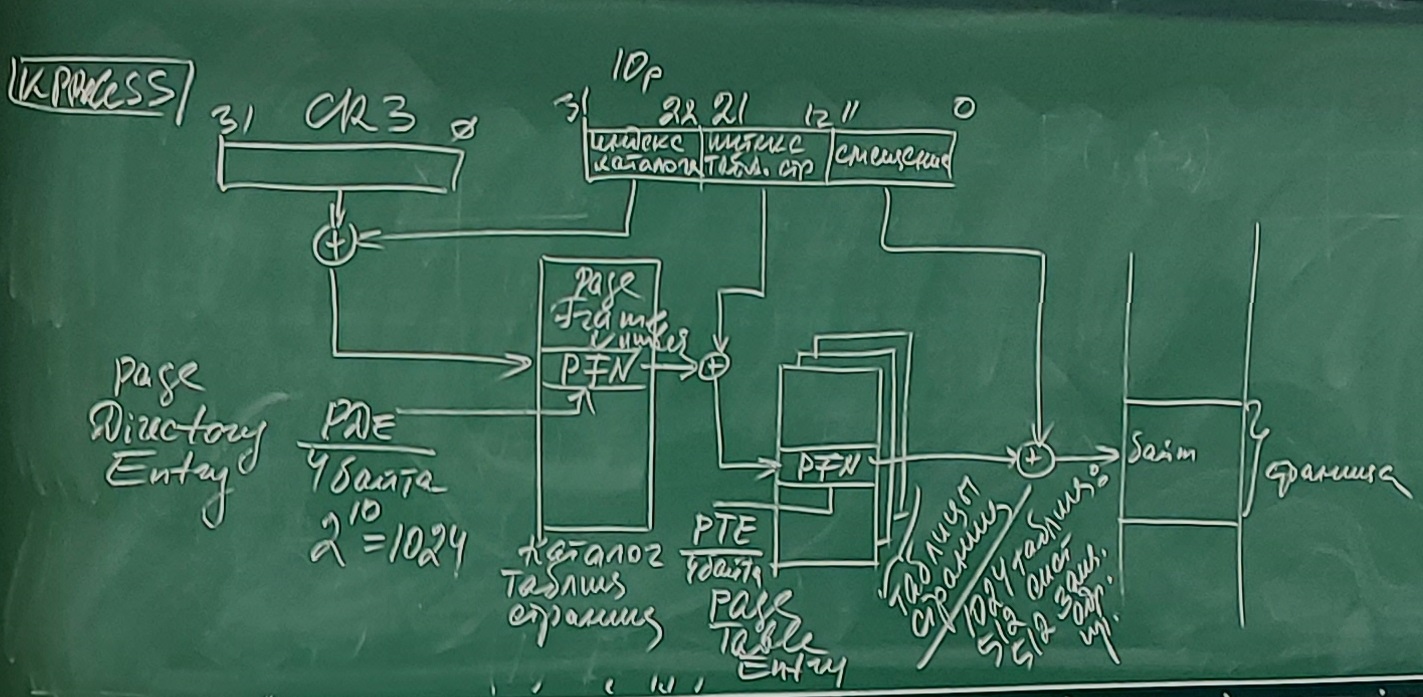 KPROCESS
31 CR3 0
10р
31 22 21 12 11 0
индекс
каталога
индекс
табл. стр
смещение
Page
Frame
Number
PFN
Page
Directory
Entry
PDE
4 байта
2^10 = 1024
каталог
таблиц
страниц
PFN
PTE
4 байта
Page
Table
Entry
таблицы
страниц
1024 таблиц:
512 сист
512
байт
страница